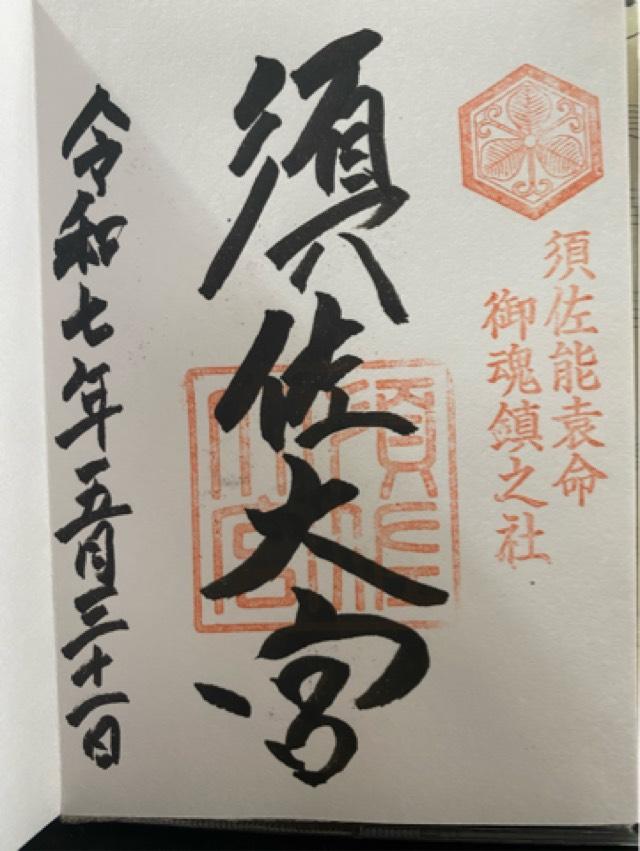 須佐能袁命
御魂鎮之社
須佐大宮
須佐大宮
令和七年五月三十一日